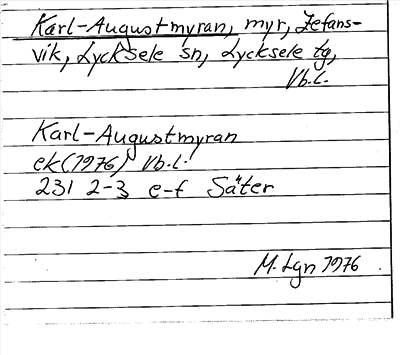 Karl-Augustmyran, myr, Zefans-
vik, Lycksele sn, Lycksele tg,
Vb.l.
Karl-Augustmyran
ek(1976) Vb.l.
231 2-3 e-f Säter
M. Lgn 1976